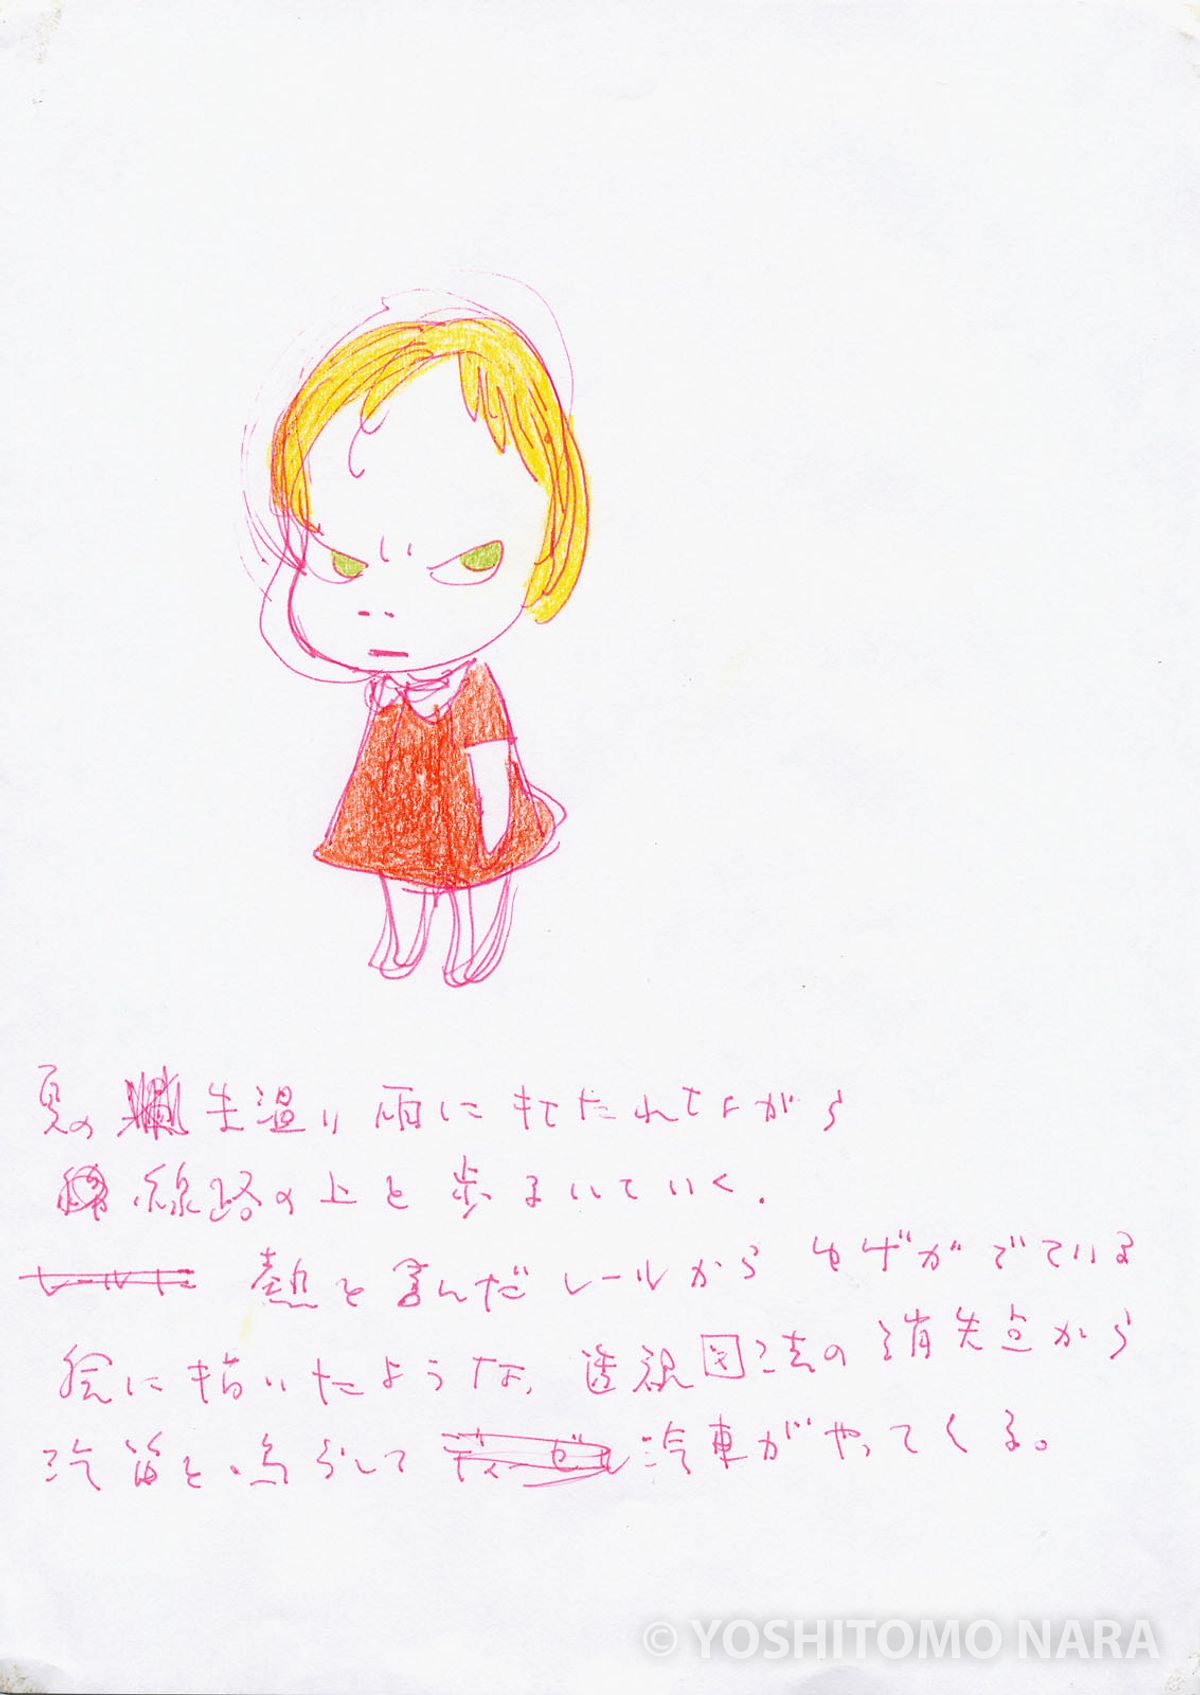 夏の 生温い雨に打たれながら
線路の上を歩いていく.
レールに 熱を含んだレールから ゆげがでている
絵に描いたような、透視図法の消失点から
汽笛を鳴らして ディーゼル 汽車がやってくる。
© YOSHITOMO NARA